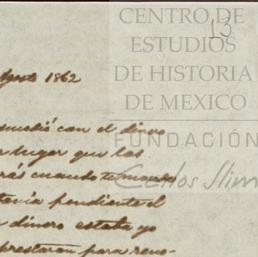 CENTRO DE
ESTUDIOS
DE HISTORIA
DE MEXICO
FUNDACIÓN
Carlos Slim
13
Agosto 1862
con el dinero
lugar que las
cuando
pendiente el
dinero estaba yo
prestaran para